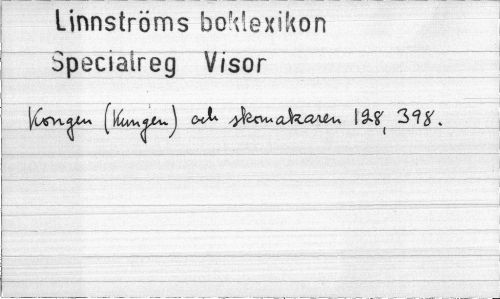 Linnströms boklexikon
Specialreg Visor
Kongen (Kungen) och skomakaren 128, 398.